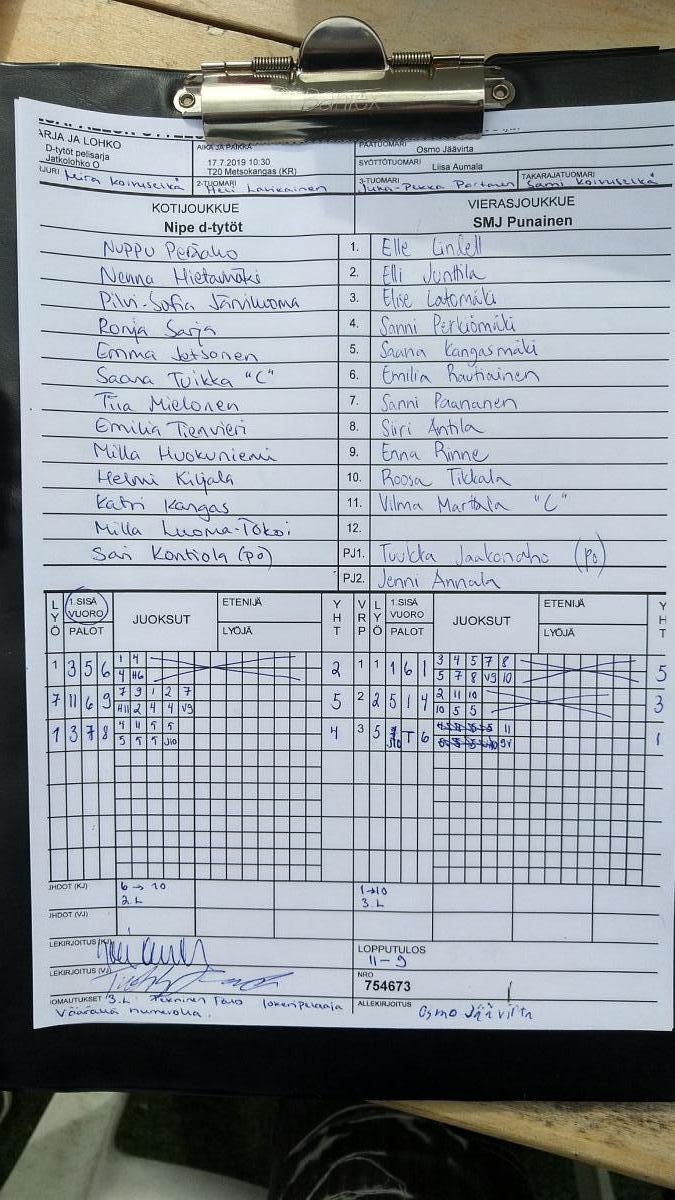 Dentex
ARJA JA LOHKO
D-tytöt pelisarja
Jatkolohko O
AIKA JA PAIKKA
17.7.2019 10:30
T20 Metsokangas (KR)
PÄÄTUOMARI Osmo Jäävirta
SYÖTTÖTUOMARI Liisa Aumala
URI Mira Koivuselkä
2-TUOMARI Heli Lavikainen
3-TUOMARI Juka-Pekka Partanen
TAKARAJATUOMARI Sami Koivuselkä
KOTIJOUKKUE
Nipe d-tytöt
VIERASJOUKKUE
SMJ Punainen
Nuppu Peräaho 1. Elle Lindell
Nenna Hietamäki 2. Elli Junttila
Pilvi-Sofia Järviluoma 3. Elise Latomäki
Ronja Sarja 4. Sanni Perkiömäki
Emma Jotsonen 5. Saana Kangasmäki
Saana Tuikka "C" 6. Emilia Rautiainen
Tiia Mielonen 7. Sanni Paananen
Emilia Tienvieri 8. Siiri Antila
Milla Huokuniemi 9. Enna Rinne
Helmi Kiljala 10. Roosa Tikkala
Katri Kangas 11. Vilma Marttala "C"
Milla Luoma-Tokoi 12.
Sari Kontiola (po) PJ1. Tuukka Jaakonaho (po)
PJ2. Jenni Annala
LYÖ 1.SISÄ VUORO PALOT JUOKSUT ETENIJÄ LYÖJÄ YHT VRP LYÖ 1.SISÄ VUORO PALOT JUOKSUT ETENIJÄ LYÖJÄ YHT
1 3 5 6 1 4 2 1 1 1 6 1 3 4 5 7 8 5
4 H6 5 7 8 V9 10
7 11 6 9 7 9 1 2 7 5 2 2 5 1 4 2 11 10 3
H11 2 4 4 V9 10 5 5
1 3 7 8 4 11 5 5 4 3 5 J10 T 6 11 1
5 5 5 J10 9V
IHDOT (KJ) 6 → 10 1→10
2.L 3.L
IHDOT (VJ)
LEKIRJOITUS (KJ)
LOPPUTULOS
11-9
LEKIRJOITUS (VJ)
NRO
754673
IOMAUTUKSET 3.L Tekninen Palo jokeripelaaja
väärällä numerolla.
ALLEKIRJOITUS Osmo Jäävirta